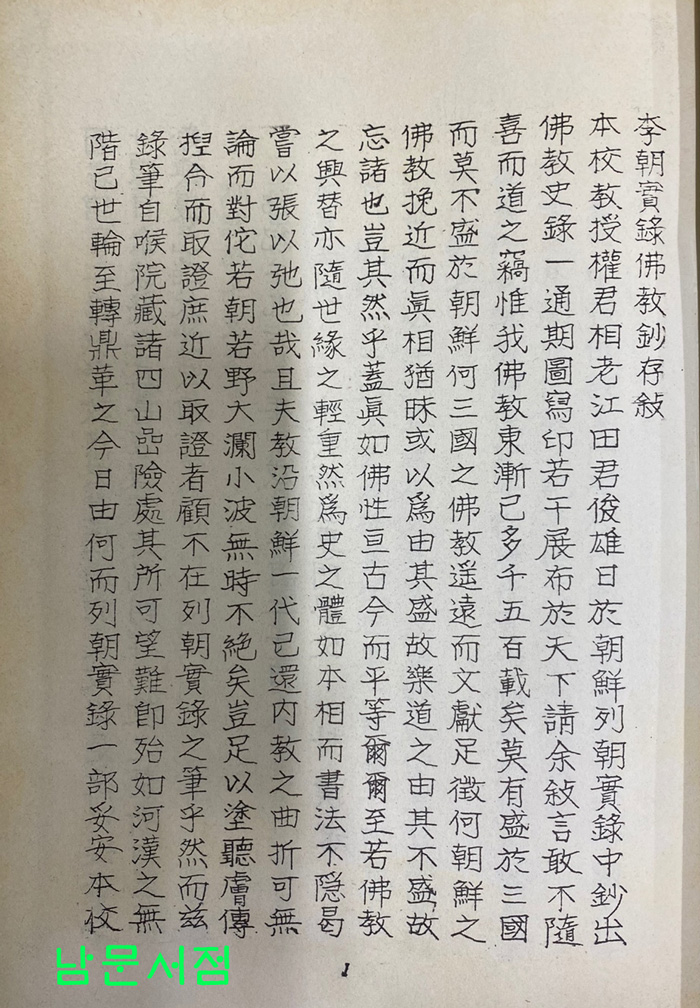 李朝實錄佛教鈔存敍
本校教授權君相老江田君俊雄日於朝鮮列朝實錄中鈔出
佛教史錄一通期圖寫印若干展布於天下請余敍言敢不隨
喜而道之竊惟我佛教東漸已多千五百載矣莫有盛於三國
而莫不盛於朝鮮何三國之佛教遥遠而文獻足徵何朝鮮之
佛教挽近而眞相猶昧或以爲由其盛故樂道之由其不盛故
忘諸也豈其然乎蓋眞如佛性亘古今而平等爾爾至若佛教
之興替亦隨世緣之輕重然爲史之體如本相而書法不隱曷
嘗以張以弛也哉且夫教沿朝鮮一代已還内教之曲折可無
論而對佗若朝若野大瀾小波無時不絶矣豈足以塗聽膚傳
揑合而取證庶近以取證者顧不在列朝實錄之筆乎然而玆
錄筆自喉院藏諸四山嵒險處其所可望難卽殆如河漢之無
階已世輪至轉鼎革之今日由何而列朝實錄一部妥安本校
남문서점
1